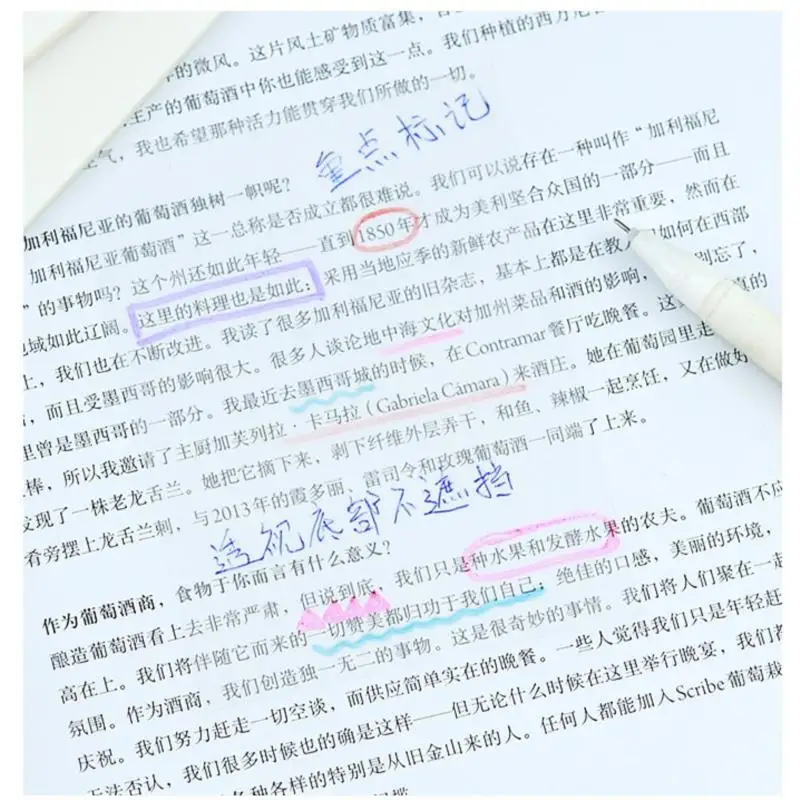 年的微风。这片风土矿物质富集，
主产的葡萄酒中你也能感受到这一点。我们种植的西方
气，我也希望那种活力能贯穿我们所做的一切。
重点标记
加利福尼亚的葡萄酒独树一帜呢？
加利福尼亚葡萄酒”这一总称是否成立都很难说。我们可以说存在一种叫作“加利福尼
”的事物吗？这个州还如此年轻——直到1850年才成为美利坚合众国的一部分——而且
域如此辽阔。这里的料理也是如此：采用当地应季的新鲜农产品在这里非常重要，然而在
上，我们也在不断改进。我读了很多加利福尼亚的旧杂志，基本上都是在教人如何在西部
而且受墨西哥的影响很大。很多人谈论地中海文化对加州菜品和酒的影响，别忘了，
里曾是墨西哥的一部分。我最近去墨西哥城的时候，在Contramar餐厅吃晚餐。真的
棒，所以我邀请了主厨加芙列拉·卡马拉（Gabriela Cámara）来酒庄。她在葡萄园里走
发现了一株老龙舌兰。她把它摘下来，剥下纤维外层弄干，和鱼、辣椒一起烹饪，又在做好
看旁摆上龙舌兰刺，与2013年的霞多丽、雷司令和玫瑰葡萄酒一同端了上来。
透视底部不遮挡
作为葡萄酒商，食物于你而言有什么意义？
酿造葡萄酒看上去非常严肃，但说到底，我们只是种水果和发酵水果的农夫。葡萄酒不应
高在上。我们将伴随它而来的一切赞美都归功于我们自己：绝佳的口感，美丽的环境，
氛围。作为酒商，我们创造独一无二的事物。这是很奇妙的事情。我们将人们聚在一起
庆祝。我们努力赶走一切空谈，而供应简单实在的晚餐。一些人觉得我们只是年轻赶
无法否认，我们很多时候也的确是这样——但无论什么时候在这里举行晚宴，我们都
各种各样的特别是从旧金山来的人。任何人都能加入Scribe葡萄栽